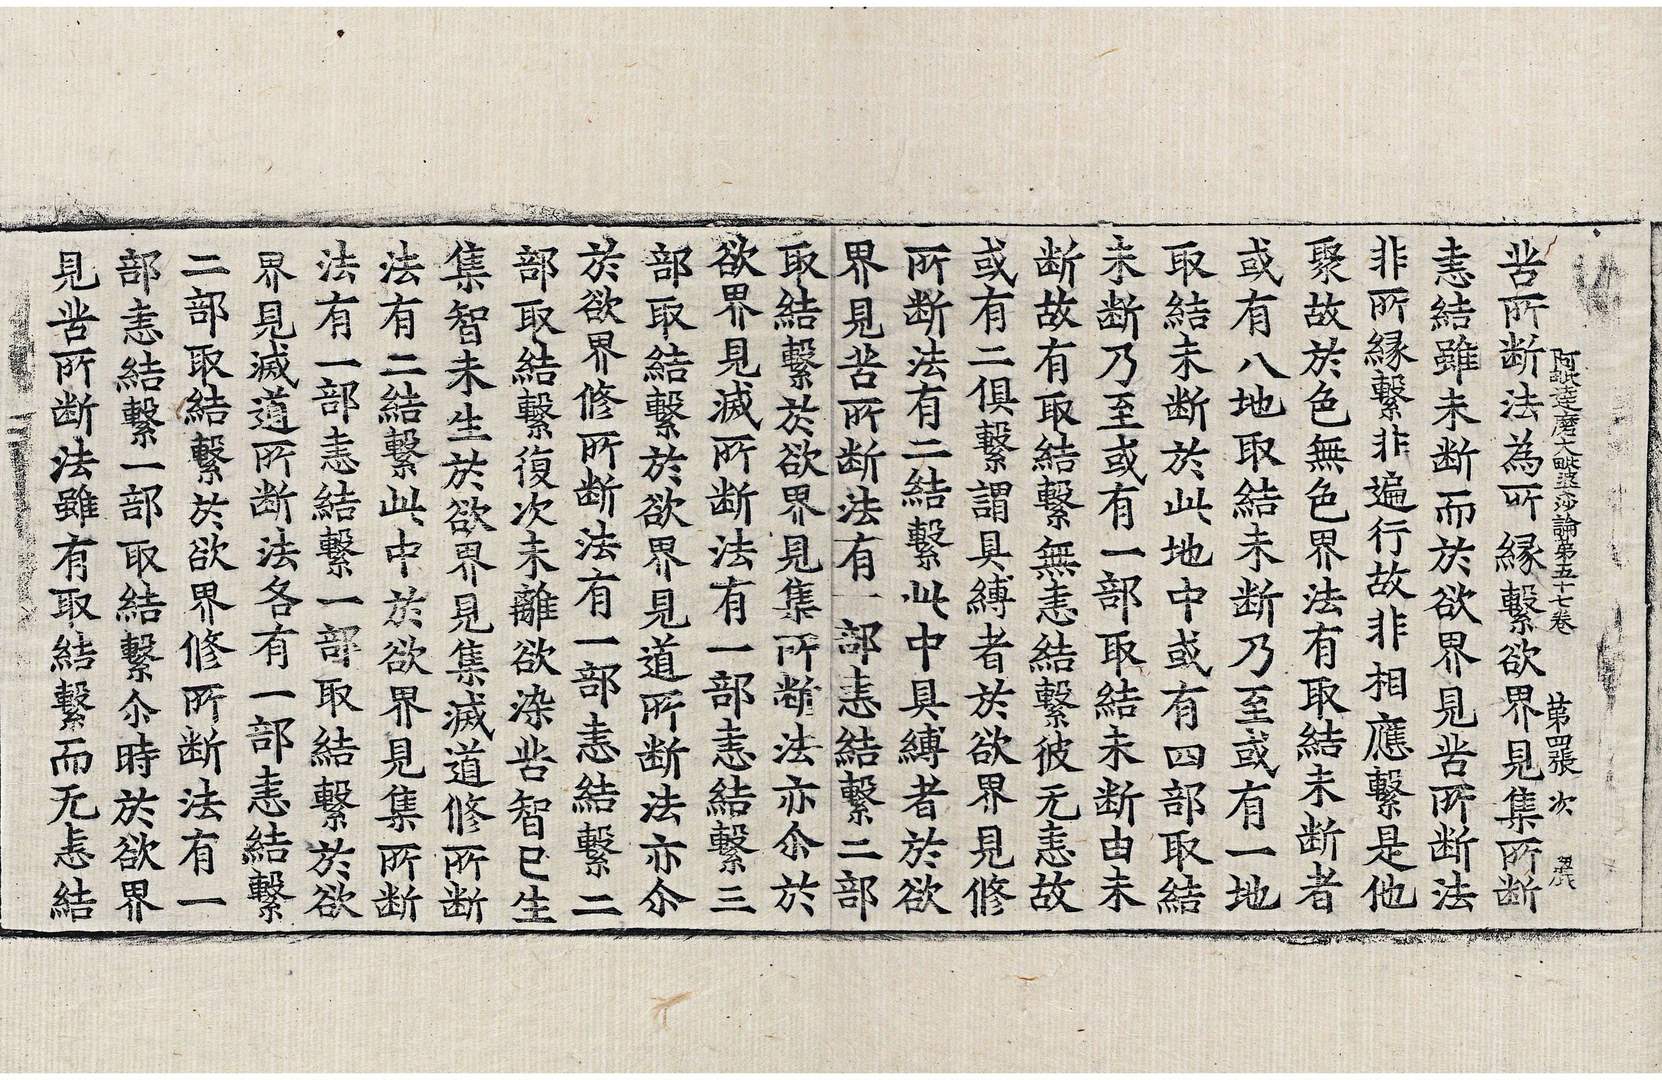 阿毗達磨大毗婆沙論第五十七卷 第四張 次
苦所断法為所縁繫欲界見集所断
恚結雖未断而於欲界見苦所断法
非所縁繫非遍行故非相應繫是他
聚故於色無色界法有取結未断者
或有八地取結未断乃至或有一地
取結未断於此地中或有四部取結
未断乃至或有一部取結未断由未
断故有取結繫無恚結繫彼无恚故
或有二俱繫謂具縛者於欲界見修
所断法有二結繫此中具縛者於欲
界見苦所断法有一部恚結繫二部
取結繫於欲界見集所断法亦尒於
欲界見滅所断法有一部恚結繫三
部取結繫於欲界見道所断法亦尒
於欲界修所断法有一部恚結繫二
部取結繫復次未離欲染苦智已生
集智未生於欲界見集滅道修所断
法有二結繫此中於欲界見集所断
法有一部恚結繫一部取結繫於欲
界見滅道所断法各有一部恚結繫
二部取結繫於欲界修所断法有一
部恚結繫一部取結繫尒時於欲界
見苦所断法雖有取結繫而无恚結